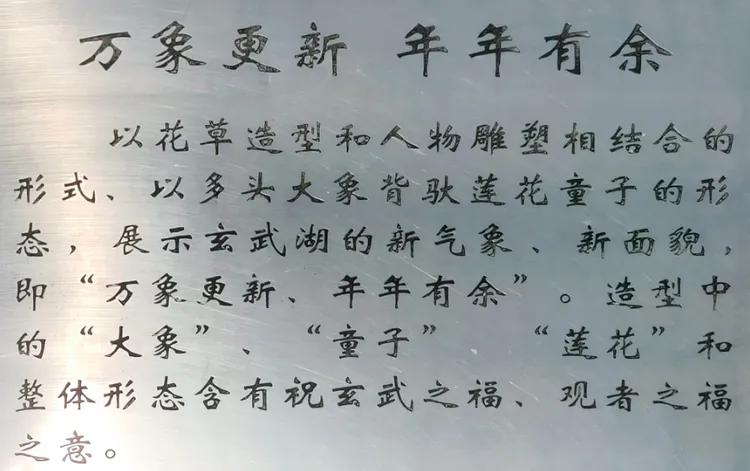 万象更新 年年有余
以花草造型和人物雕塑相结合的
形式、以多头大象背驮莲花童子的形
态，展示玄武湖的新气象、新面貌，
即“万象更新、年年有余”。造型中
的“大象”、“童子” “莲花”和
整体形态含有祝玄武之福、观者之福
之意。